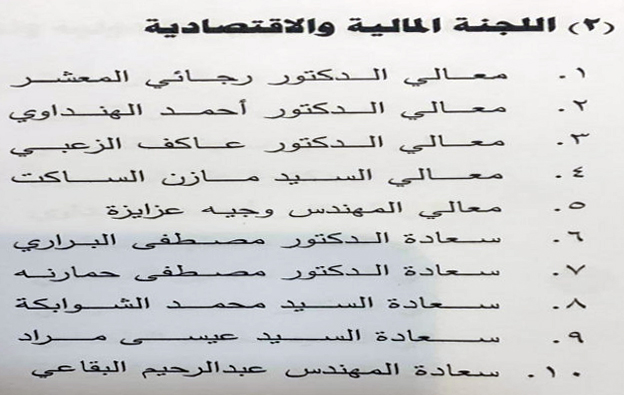 (٢) اللجنة المالية والاقتصادية
١. معالي الدكتور رجائي المعشر
٢. معالي الدكتور أحمد الهنداوي
٣. معالي الدكتور عاكف الزعبي
٤. معالي السيد مازن الساكت
٥. معالي المهندس وجيه عزايزة
٦. سعادة الدكتور مصطفى البراري
٧. سعادة الدكتور مصطفى حمارنه
٨. سعادة السيد محمد الشوابكة
٩. سعادة السيد عيسى مراد
١٠. سعادة المهندس عبدالرحيم البقاعي